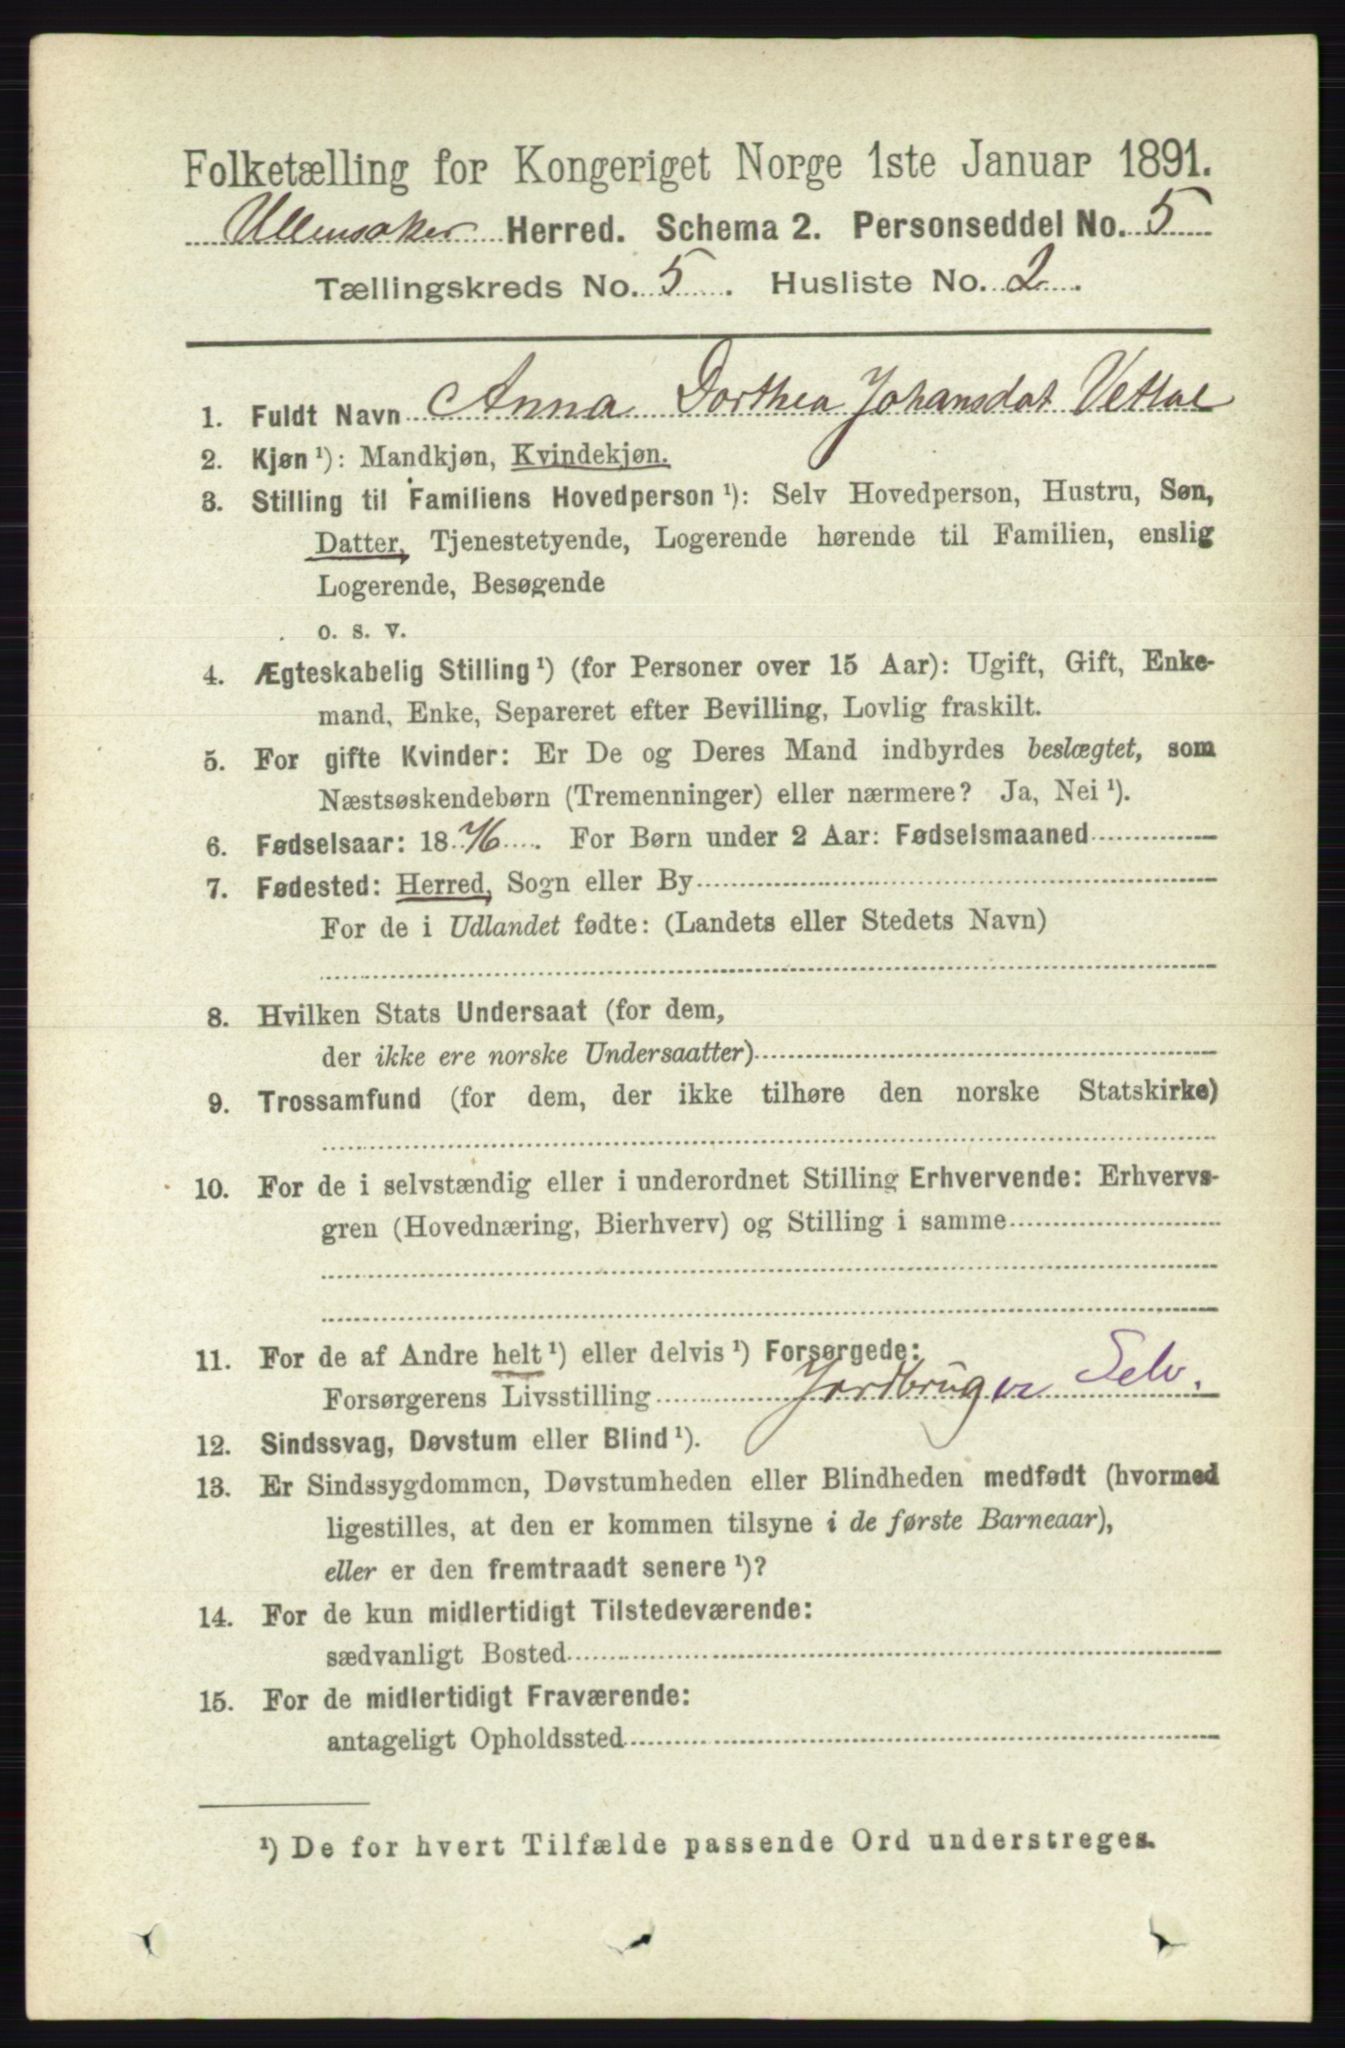 Folketælling for Kongeriget Norge 1ste Januar 1891.
Ullensaker Herred. Schema 2. Personseddel No. 5
Tællingskreds No. 5. Husliste No. 2.
1. Fuldt Navn Anna Dorthea Johansdat Vettal
2. Kjøn ¹): Mandkjøn, Kvindekjøn.
3. Stilling til Familiens Hovedperson ¹): Selv Hovedperson, Hustru, Søn,
Datter, Tjenestetyende, Logerende hørende til Familien, enslig
Logerende, Besøgende
o. s. v.
4. Ægteskabelig Stilling ¹) (for Personer over 15 Aar): Ugift, Gift, Enke-
mand, Enke, Separeret efter Bevilling, Lovlig fraskilt.
5. For gifte Kvinder: Er De og Deres Mand indbyrdes beslægtet, som
Næstsøskendebørn (Tremenninger) eller nærmere? Ja, Nei ¹).
6. Fødselsaar: 1876. For Børn under 2 Aar: Fødselsmaaned
7. Fødested: Herred, Sogn eller By
For de i Udlandet fødte: (Landets eller Stedets Navn)
8. Hvilken Stats Undersaat (for dem,
der ikke ere norske Undersaatter)
9. Trossamfund (for dem, der ikke tilhøre den norske Statskirke)
10. For de i selvstændig eller i underordnet Stilling Erhvervende: Erhvervs-
gren (Hovednæring, Bierhverv) og Stilling i samme
11. For de af Andre helt ¹) eller delvis ¹) Forsørgede:
Forsørgerens Livsstilling Jordbruger Selv.
12. Sindssvag, Døvstum eller Blind ¹).
13. Er Sindssygdommen, Døvstumheden eller Blindheden medfødt (hvormed
ligestilles, at den er kommen tilsyne i de første Barneaar),
eller er den fremtraadt senere ¹)?
14. For de kun midlertidigt Tilstedeværende:
sædvanligt Bosted
15. For de midlertidigt Fraværende:
antageligt Opholdssted
¹) De for hvert Tilfælde passende Ord understreges.